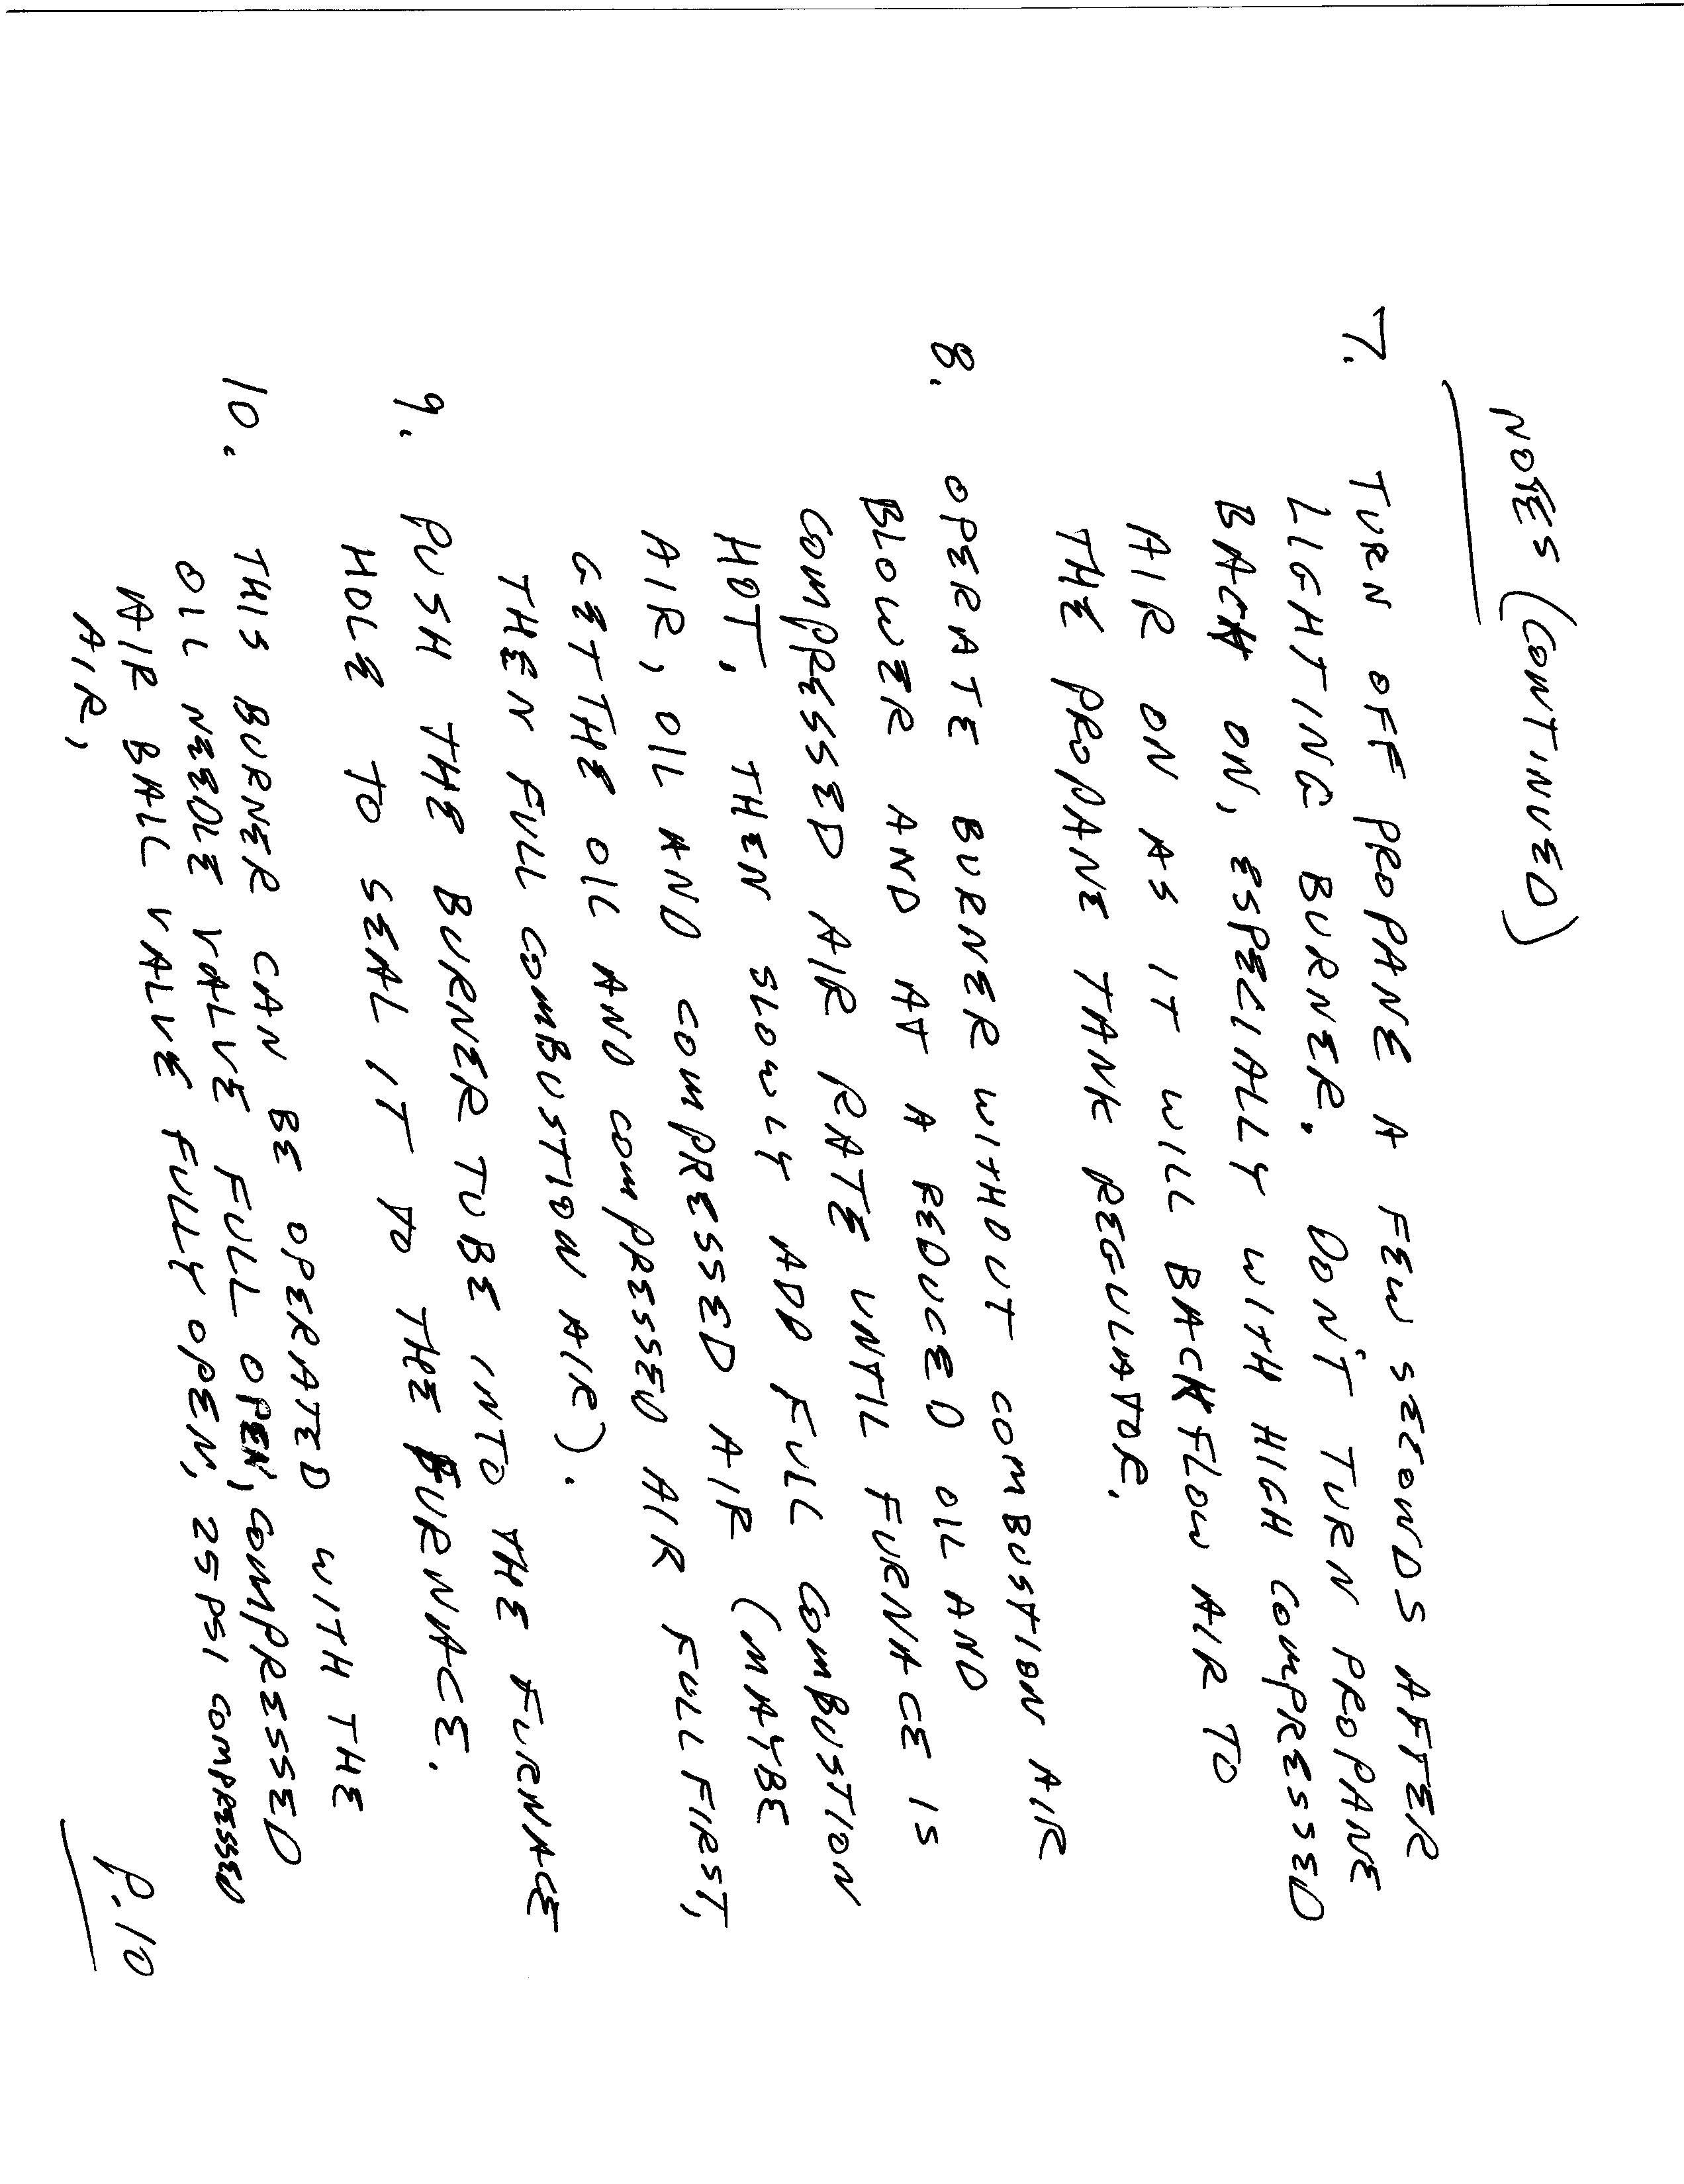 NOTES (CONTINUED)
7. TURN OFF PROPANE A FEW SECONDS AFTER
LIGHTING BURNER. DON'T TURN PROPANE
BACK ON, ESPECIALLY WITH HIGH COMPRESSED
AIR ON AS IT WILL BACKFLOW AIR TO
THE PROPANE TANK REGULATOR.
8. OPERATE BURNER WITHOUT COMBUSTION AIR
BLOWER AND AT A REDUCED OIL AND
COMPRESSED AIR RATE UNTIL FURNACE IS
HOT. THEN SLOWLY ADD FULL COMBUSTION
AIR, OIL AND COMPRESSED AIR (MAYBE
GET THE OIL AND COMPRESSED AIR FULL FIRST,
THEN FULL COMBUSTION AIR).
9. PUSH THE BURNER TUBE INTO THE FURNACE
HOLE TO SEAL IT TO THE FURNACE.
10. THIS BURNER CAN BE OPERATED WITH THE
OIL NEEDLE VALVE FULL OPEN, COMPRESSED
AIR BALL VALVE FULLY OPEN, 25PSI COMPRESSED
AIR,
P.10